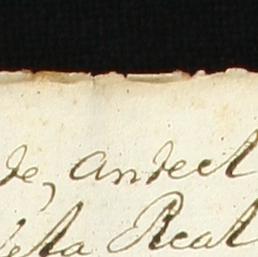 de, andect
esta Real